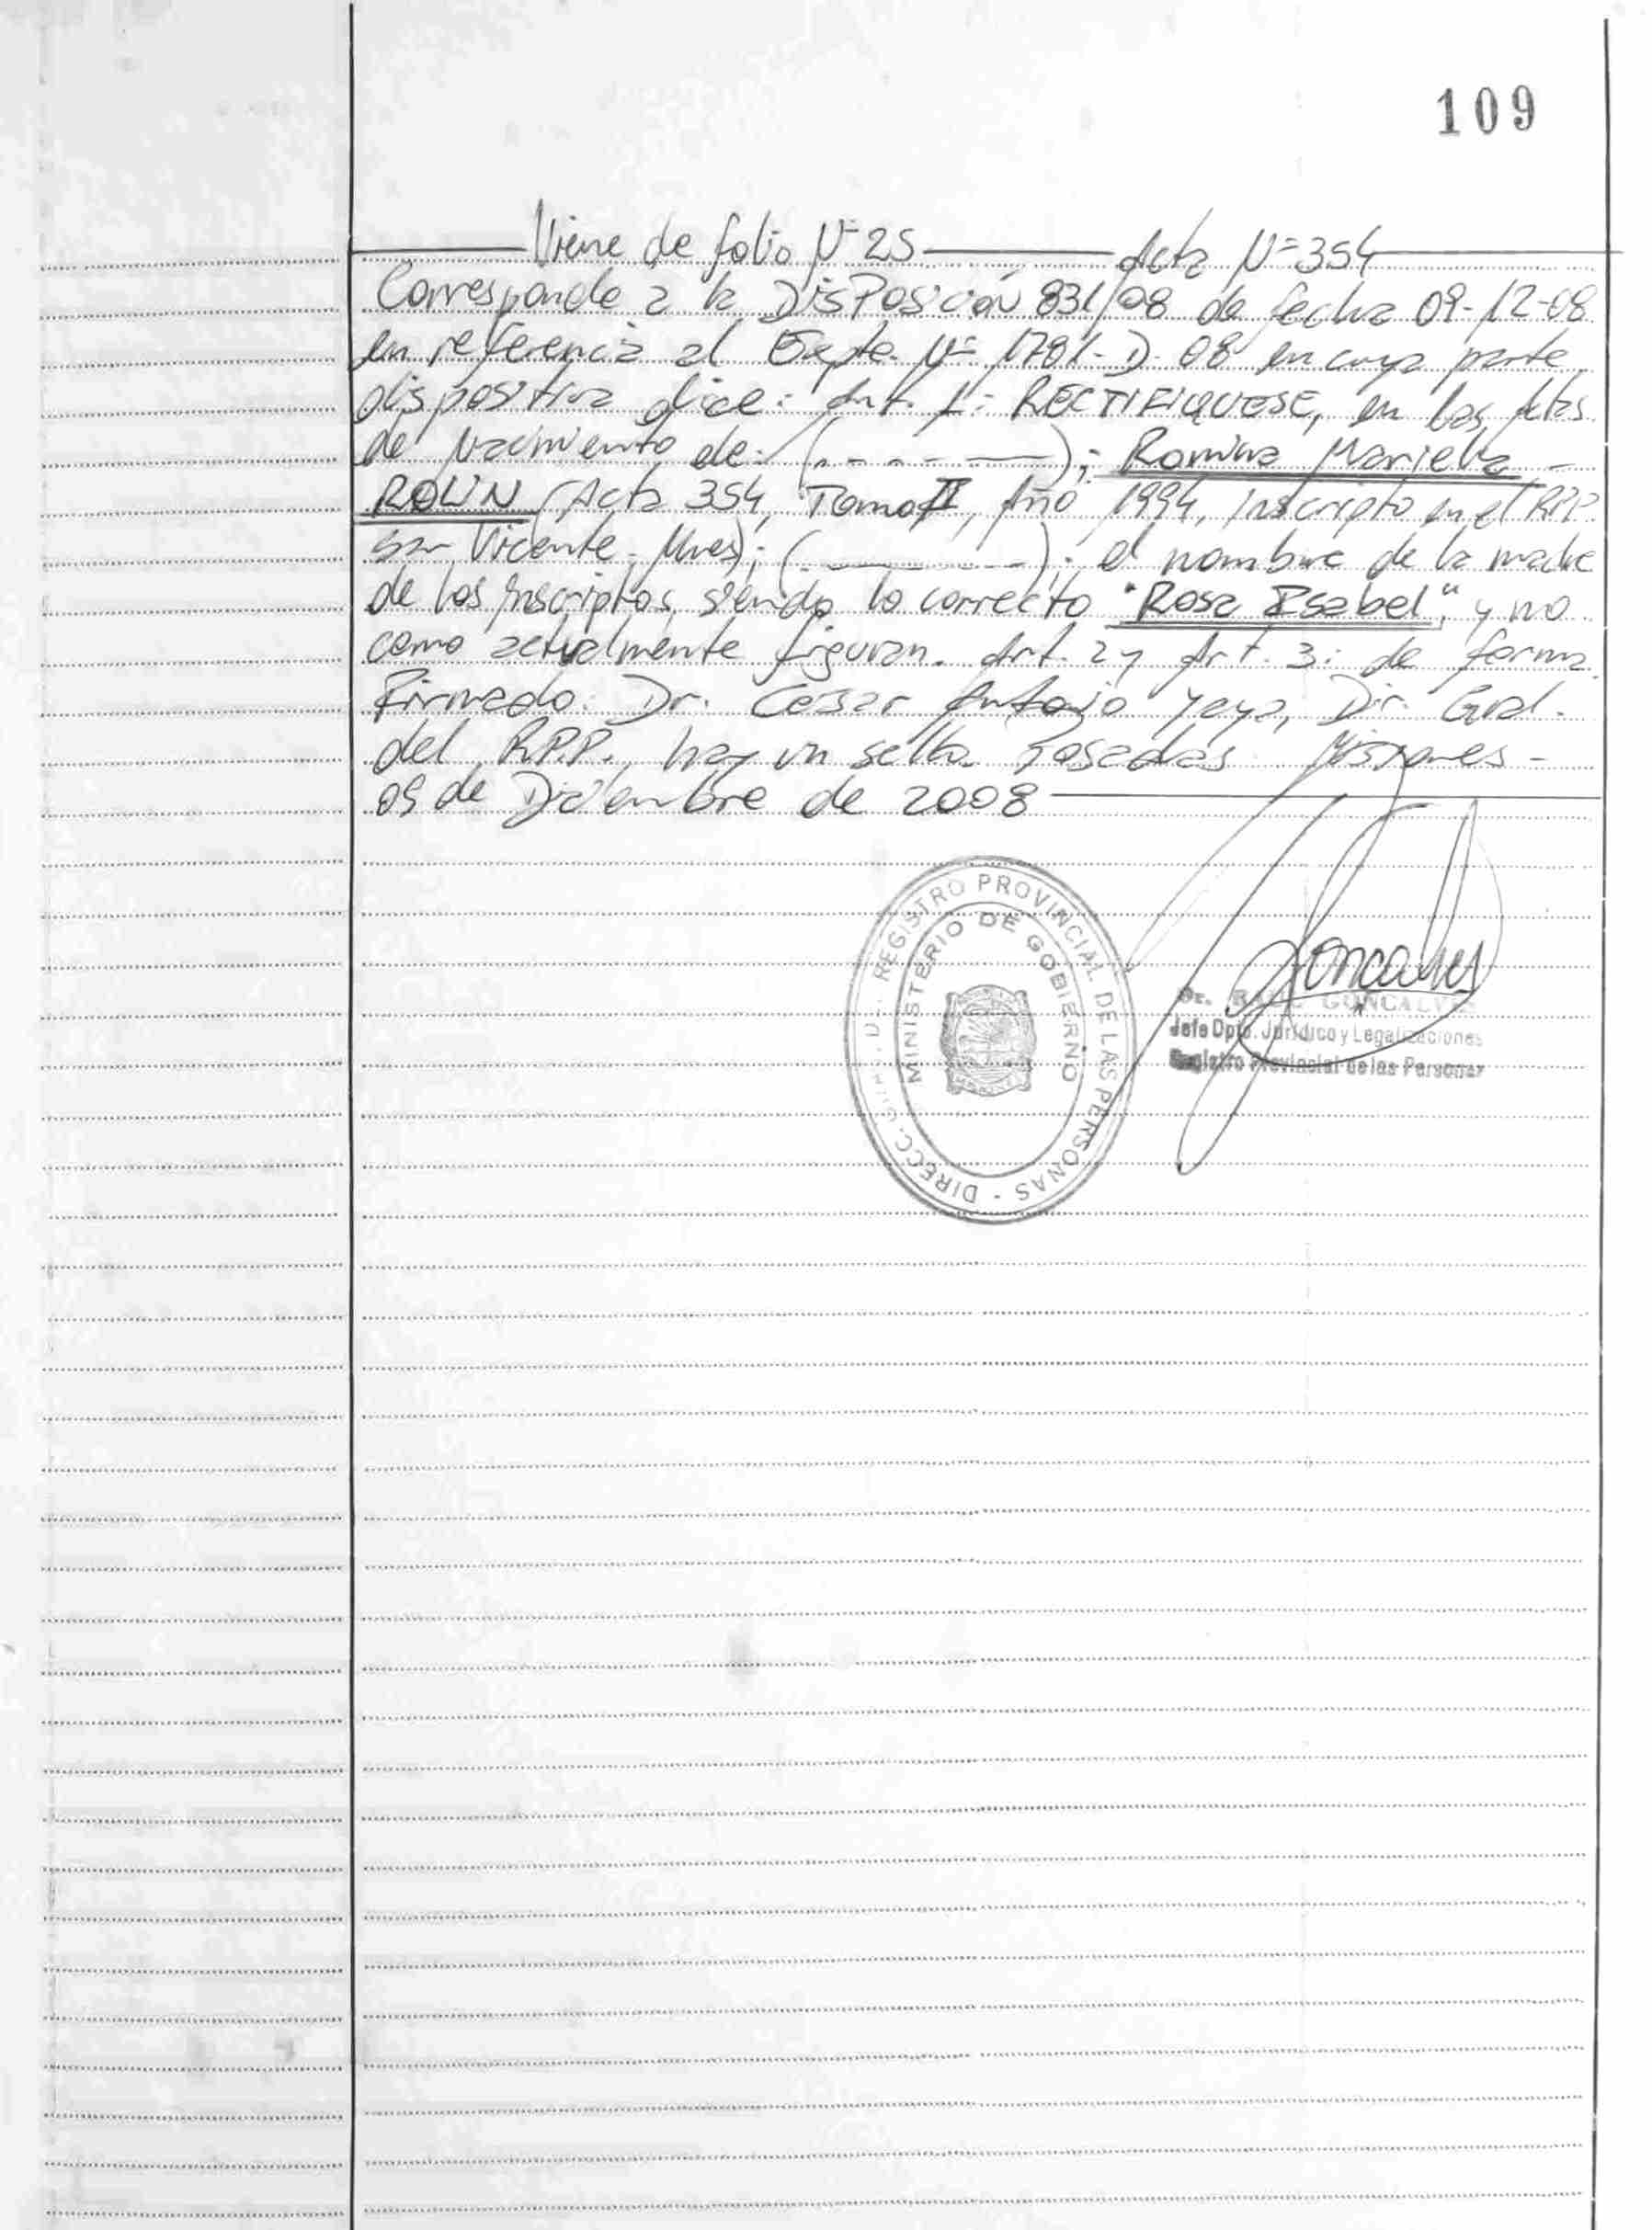 109
Viene de folio Nº 25 Acta Nº 354
Corresponde a la DISPOSICIÓN 831/08 de fecha 09-12-08
en referencia al Expte. Nº 1781-D-08 en cuya parte
dispositiva dice: Art. 1: RECTIFIQUESE, en las Actas
de Nacimiento de: (- - - - —); Romina Mariela -
ROLIN (Acta 354, Tomo II, Año 1994, inscripto en el RPP.
San Vicente. Mnes); (- — - -); el nombre de la madre
de los inscriptos, siendo lo correcto "Rosa Isabel", y no
como actualmente figuran. Art. 2 y Art. 3: de forma.
Firmado: Dr. Cesar Antonio Yaya, Dir. Gral.
del R.P.P., hay un sello. Posadas Misiones -
09 de Diciembre de 2008
REGISTRO PROVINCIAL DE LAS PERSONAS - DIRECC.
MINISTERIO DE GOBIERNO
Goncalves
Dr. GONCALVES
Jefe Dpto. Jurídico y Legalizaciones
Registro Provincial de las Personas